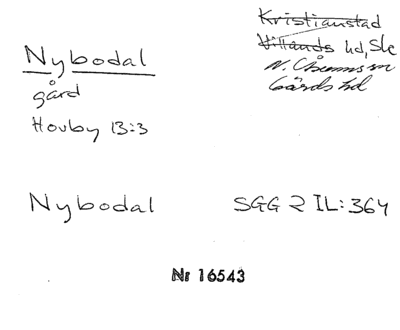 Nybodal
gård
Hovby 13:3
Kristianstad
Villands hd, Ske
N. Åsums sn
Gärds hd
Nybodal
SGG 2 IL:364
Nr 16543